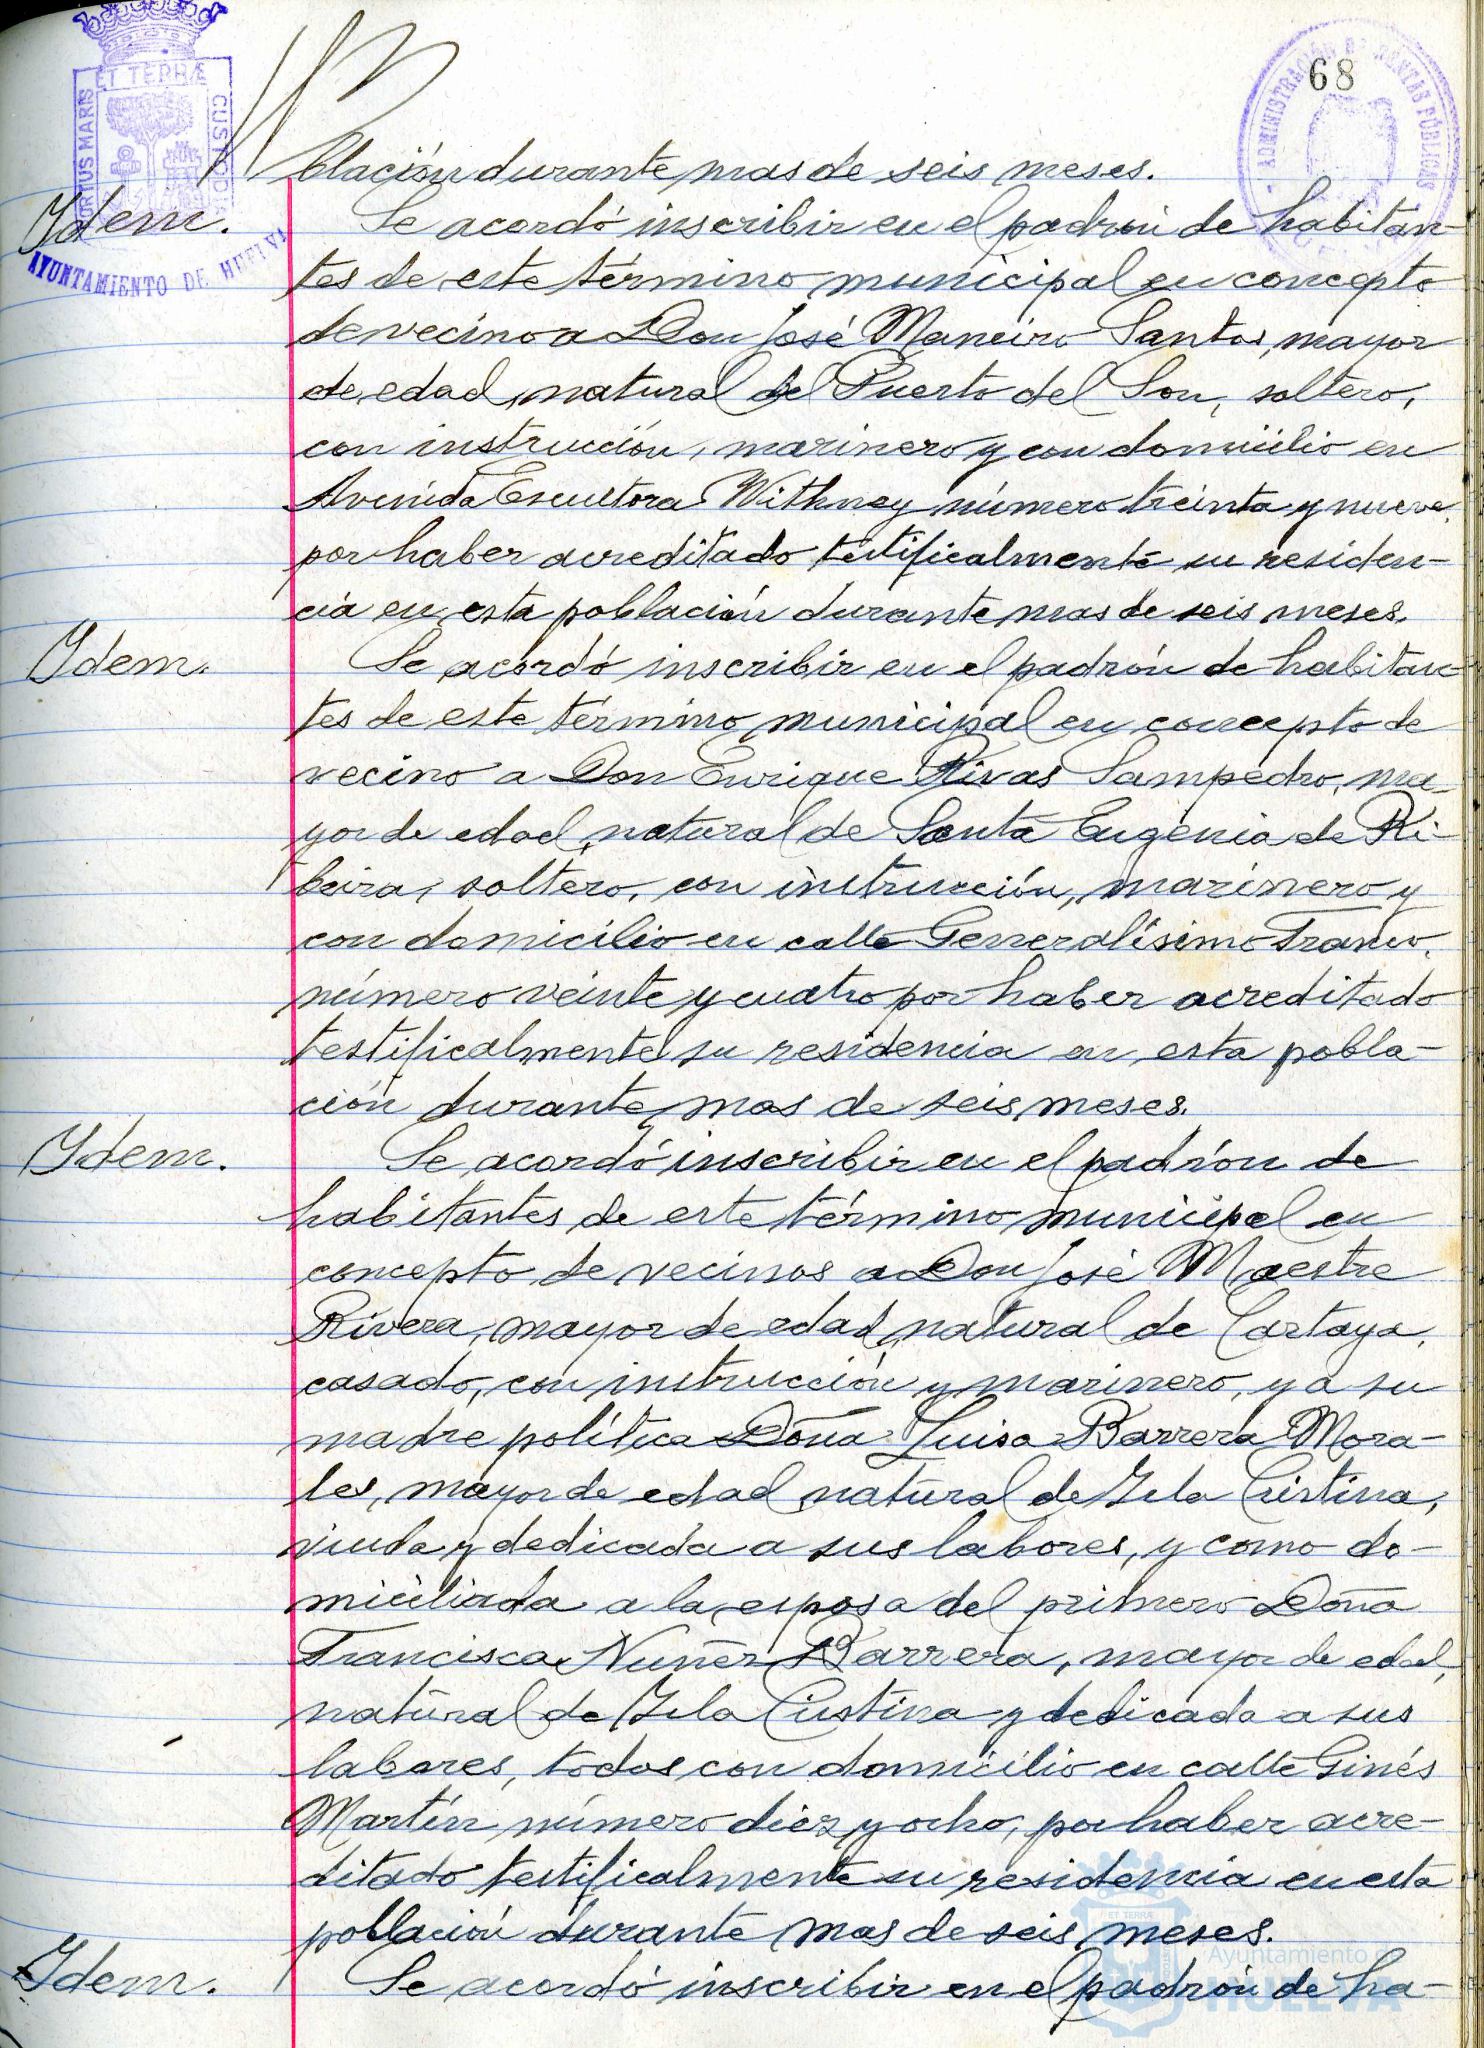 68
PORTUS MARIS ET TERRÆ CUSTODIA
AYUNTAMIENTO DE HUELVA
ADMINISTRACIÓN DE RENTAS PÚBLICAS
blación durante mas de seis meses.
Idem.
Se acordó inscribir en el padrón de habitan-
tes de este término municipal en concepto
de vecino a Don José Maneiro Santos, mayor
de edad, natural del Puerto del Son, soltero,
con instrucción, marinero y con domicilio en
Avenida Escultora Withney número treinta y nueve,
por haber acreditado testificalmente su residen-
cia en esta población durante mas de seis meses.
Idem.
Se acordó inscribir en el padrón de habitan-
tes de este término municipal en concepto de
vecino a Don Enrique Rivas Sampedro, ma-
yor de edad, natural de Santa Eugenia de Ri-
beira, soltero, con instrucción, marinero y
con domicilio en calle Generalísimo Franco,
número veinte y cuatro por haber acreditado
testificalmente su residencia en esta pobla-
ción durante mas de seis meses.
Idem.
Se acordó inscribir en el padrón de
habitantes de este término municipal en
concepto de vecinos a Don José Maestre
Rivera, mayor de edad, natural de Cartaya,
casado, con instrucción y marinero, y a su
madre política Doña Luisa Barrera Mora-
les, mayor de edad, natural de Isla Cristina,
viuda y dedicada a sus labores, y como do-
miciliada a la esposa del primero Doña
Francisca Nuñez Barrera, mayor de edad,
natural de Isla Cristina y dedicada a sus
labores, todos con domicilio en calle Ginés
Martín número diez y ocho, por haber acre-
ditado testificalmente su residencia en esta
población durante mas de seis meses.
Idem.
Se acordó inscribir en el padrón de ha-
ET TERRÆ
Ayuntamiento de
HUELVA